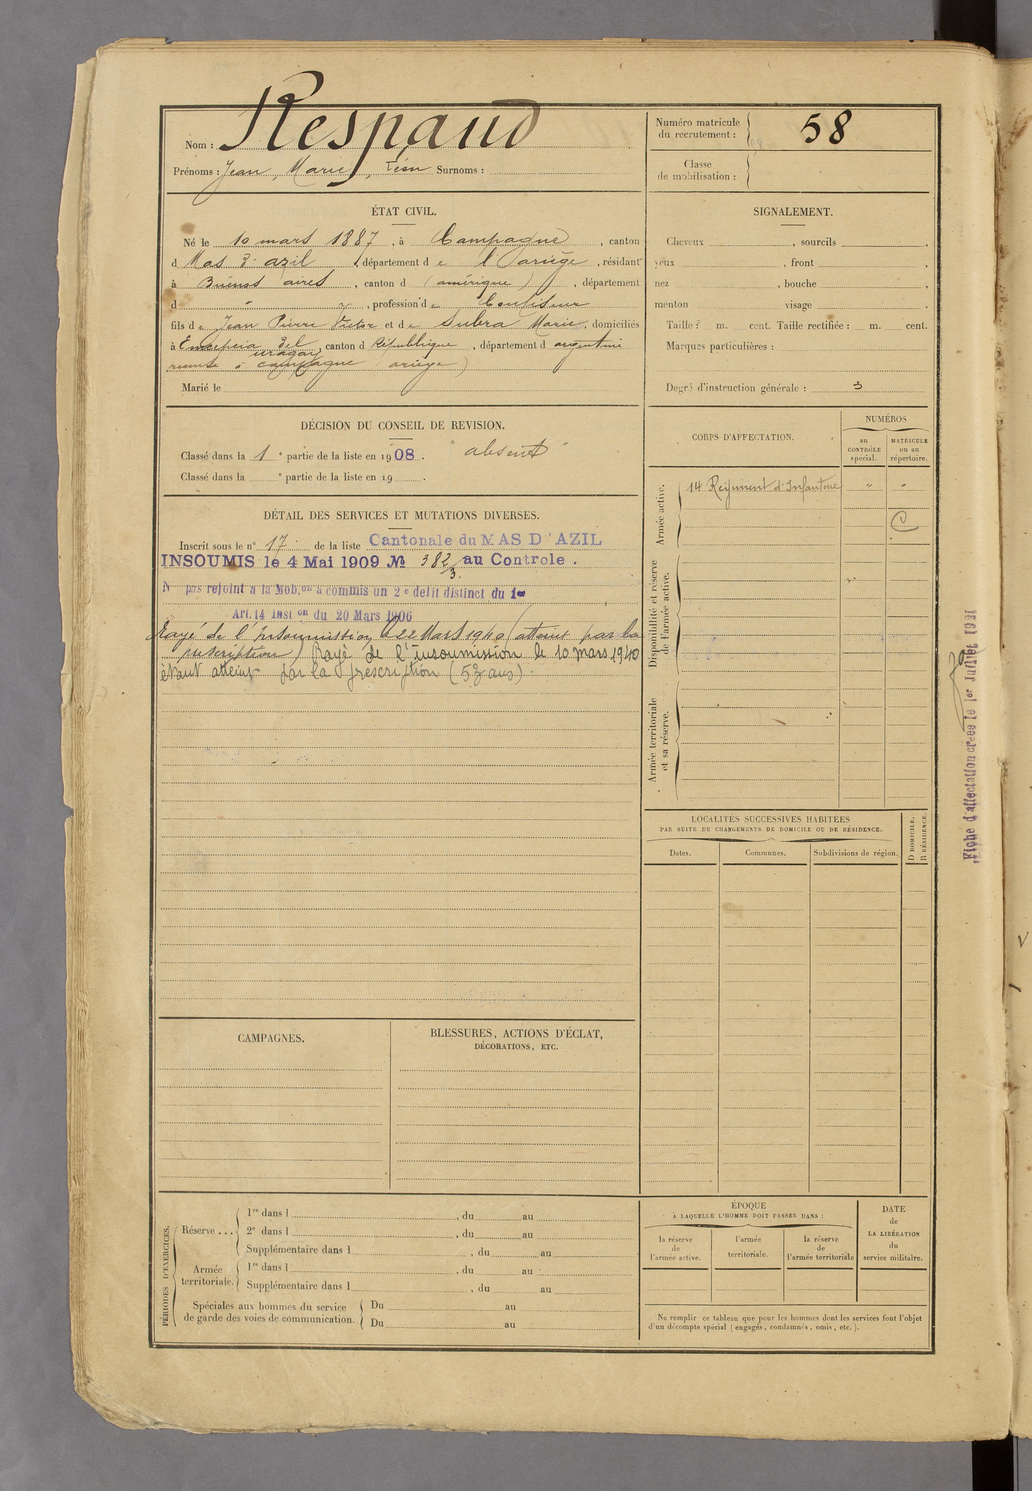 Nom : Respaud
Prénoms : Jean, Marie, Surnoms :
Numéro matricule
du recrutement : 58
Classe
de mobilisation :
ÉTAT CIVIL.
Né le 10 mars 1887, à Campagne, canton
d Mas d'azil, département de l'ariège, résidant
à Buenos aires, canton d (amérique), département
d " , profession de Confiseur
fils de Jean Pierre Victor et de Subra Marie, domiciliés
à del uragay, canton d République, département d argentine
à campagne ariège)
Marié le
SIGNALEMENT.
Cheveux , sourcils ,
yeux , front ,
nez , bouche ,
menton visage
Taille : m. cent. Taille rectifiée : m. cent.
Marques particulières :
Degré d'instruction générale : 3
DÉCISION DU CONSEIL DE REVISION.
Classé dans la 1e partie de la liste en 1908. "absent"
Classé dans la e partie de la liste en 19 .
DÉTAIL DES SERVICES ET MUTATIONS DIVERSES.
Inscrit sous le n° 17 de la liste Cantonale du MAS D'AZIL
INSOUMIS le 4 Mai 1909 № 382/3 au Controle.
N pas rejoint à la Mob.on a commis un 2e délit distinct du 1er
Art. 14 Inston du 20 Mars 1906
Rayé de l'insoumission le 22 Mars 1940 (atteint par la
prescription) Rayé de l'insoumission le 10 mars 1940
étant atteint par la prescription (53 ans).
CORPS D'AFFECTATION.
NUMÉROS
au
CONTRÔLE
spécial.
MATRICULE
ou au
répertoire.
Armée active.
14 Régiment d'Infanterie " "
C
Disponibilité et réserve
de l'armée active.
Armée territoriale
et sa réserve.
LOCALITÉS SUCCESSIVES HABITÉES
PAR SUITE DE CHANGEMENTS DE DOMICILE OU DE RÉSIDENCE.
Dates.
Communes.
Subdivisions de région.
D DOMICILE.
R RÉSIDENCE.
Fiche d'affectation créée le 1er Juillet 1921
CAMPAGNES.
BLESSURES, ACTIONS D'ÉCLAT,
DÉCORATIONS, ETC.
PÉRIODES D'EXERCICES.
Réserve ...
1re dans l , du au
2e dans l , du au
Supplémentaire dans l , du au
Armée
territoriale.
1re dans l , du au
Supplémentaire dans l , du au
Spéciales aux hommes du service
de garde des voies de communication.
Du au
Du au
ÉPOQUE
À LAQUELLE L'HOMME DOIT PASSER DANS :
la réserve
de
l'armée active.
l'armée
territoriale.
la réserve
de
l'armée territoriale
DATE
de
LA LIBÉRATION
du
service militaire.
Ne remplir ce tableau que pour les hommes dont les services font l'objet
d'un décompte spécial (engagés, condamnés, omis, etc.).